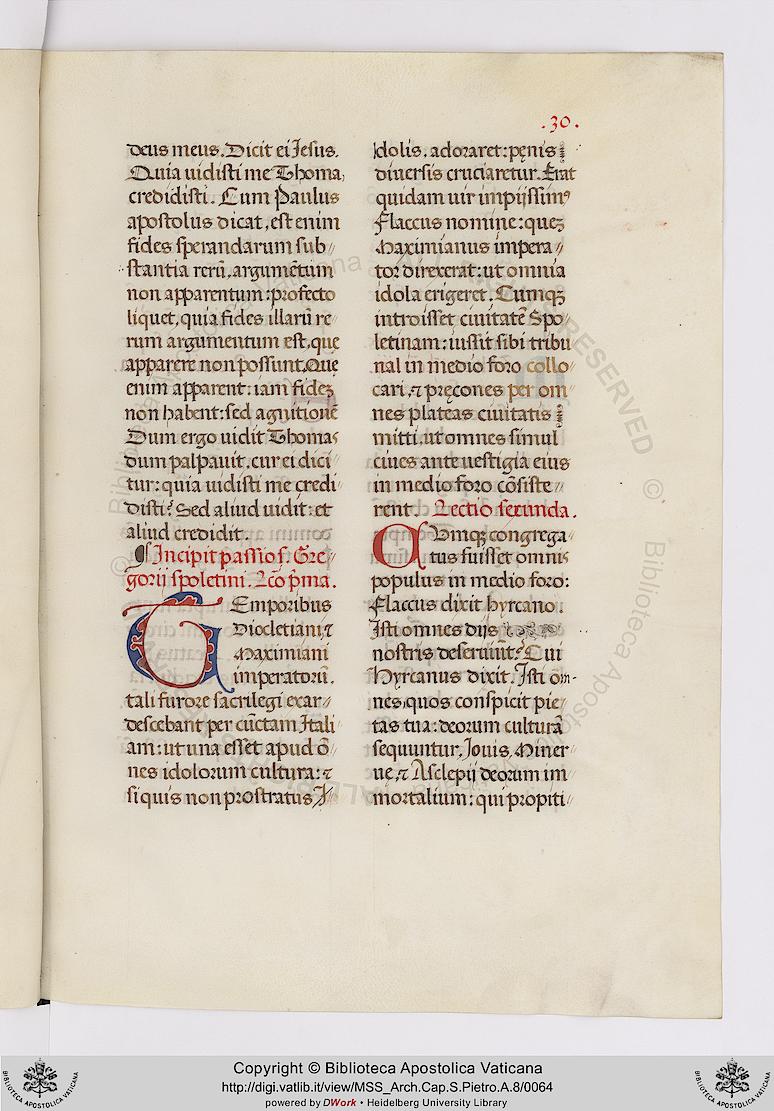 .30.
deus meus. Dicit ei Jesus.
Quia uidisti me Thoma,
credidisti. Cum Paulus
apostolus dicat, est enim
fides sperandarum sub〃
stantia rerū, argumētum
non apparentum: profecto
liquet, quia fides illarū re〃
rum argumentum est, que
apparere non possunt. Que
enim apparent: iam fideꝫ
non habent: sed agnitionē
Dum ergo uidit Thomas
dum palpauit, cur ei dici〃
tur: quia uidisti me credi〃
disti? Sed aliud uidit: et
aliud credidit.
¶ Incipit passio s. Gre〃
gorii spoletini. Lc̄o p̄ma.
TEmporibus
Diocletiani, ⁊
Maximiani
imperatorū.
tali furore sacrilegi exar〃
descebant per cūctam Itali〃
am: ut una esset apud ō〃
nes idolorum cultura: ⁊
siquis non prostratus I〃
dolis, adoraret: pęnis
diuersis cruciaretur. Erat
quidam uir impijssimꝰ
Flaccus nomine: queꝫ
Maximianus impera〃
tor direxerat: ut omnia
idola erigeret. Cumqꝫ
introisset ciuitatē Spo〃
letinam: iussit sibi tribu
nal in medio foro collo〃
cari, ⁊ pręcones per om〃
nes plateas ciuitatis
mitti, ut omnes simul
ciues ante uestigia eius
in medio foro cōsiste〃
rent. Lectio secunda.
CVmqꝫ congrega〃
tus fuisset omnis
populus in medio foro:
Flaccus dixit hyrcano.
Isti omnes dijs
nostris deseruiūt? Cui
Hyrcanus dixit. Isti om̄〃
nes, quos conspicit pie〃
tas tua: deorum culturā
sequuntur, Jouis, Miner〃
ue, ⁊ Asclepij deorum im〃
mortalium: qui propiti〃
Copyright © Biblioteca Apostolica Vaticana
http://digi.vatlib.it/view/MSS_Arch.Cap.S.Pietro.A.8/0064
powered by DWork • Heidelberg University Library
BIBLIOTECA APOSTOLICA VATICANA
BIBLIOTECA APOSTOLICA VATICANA